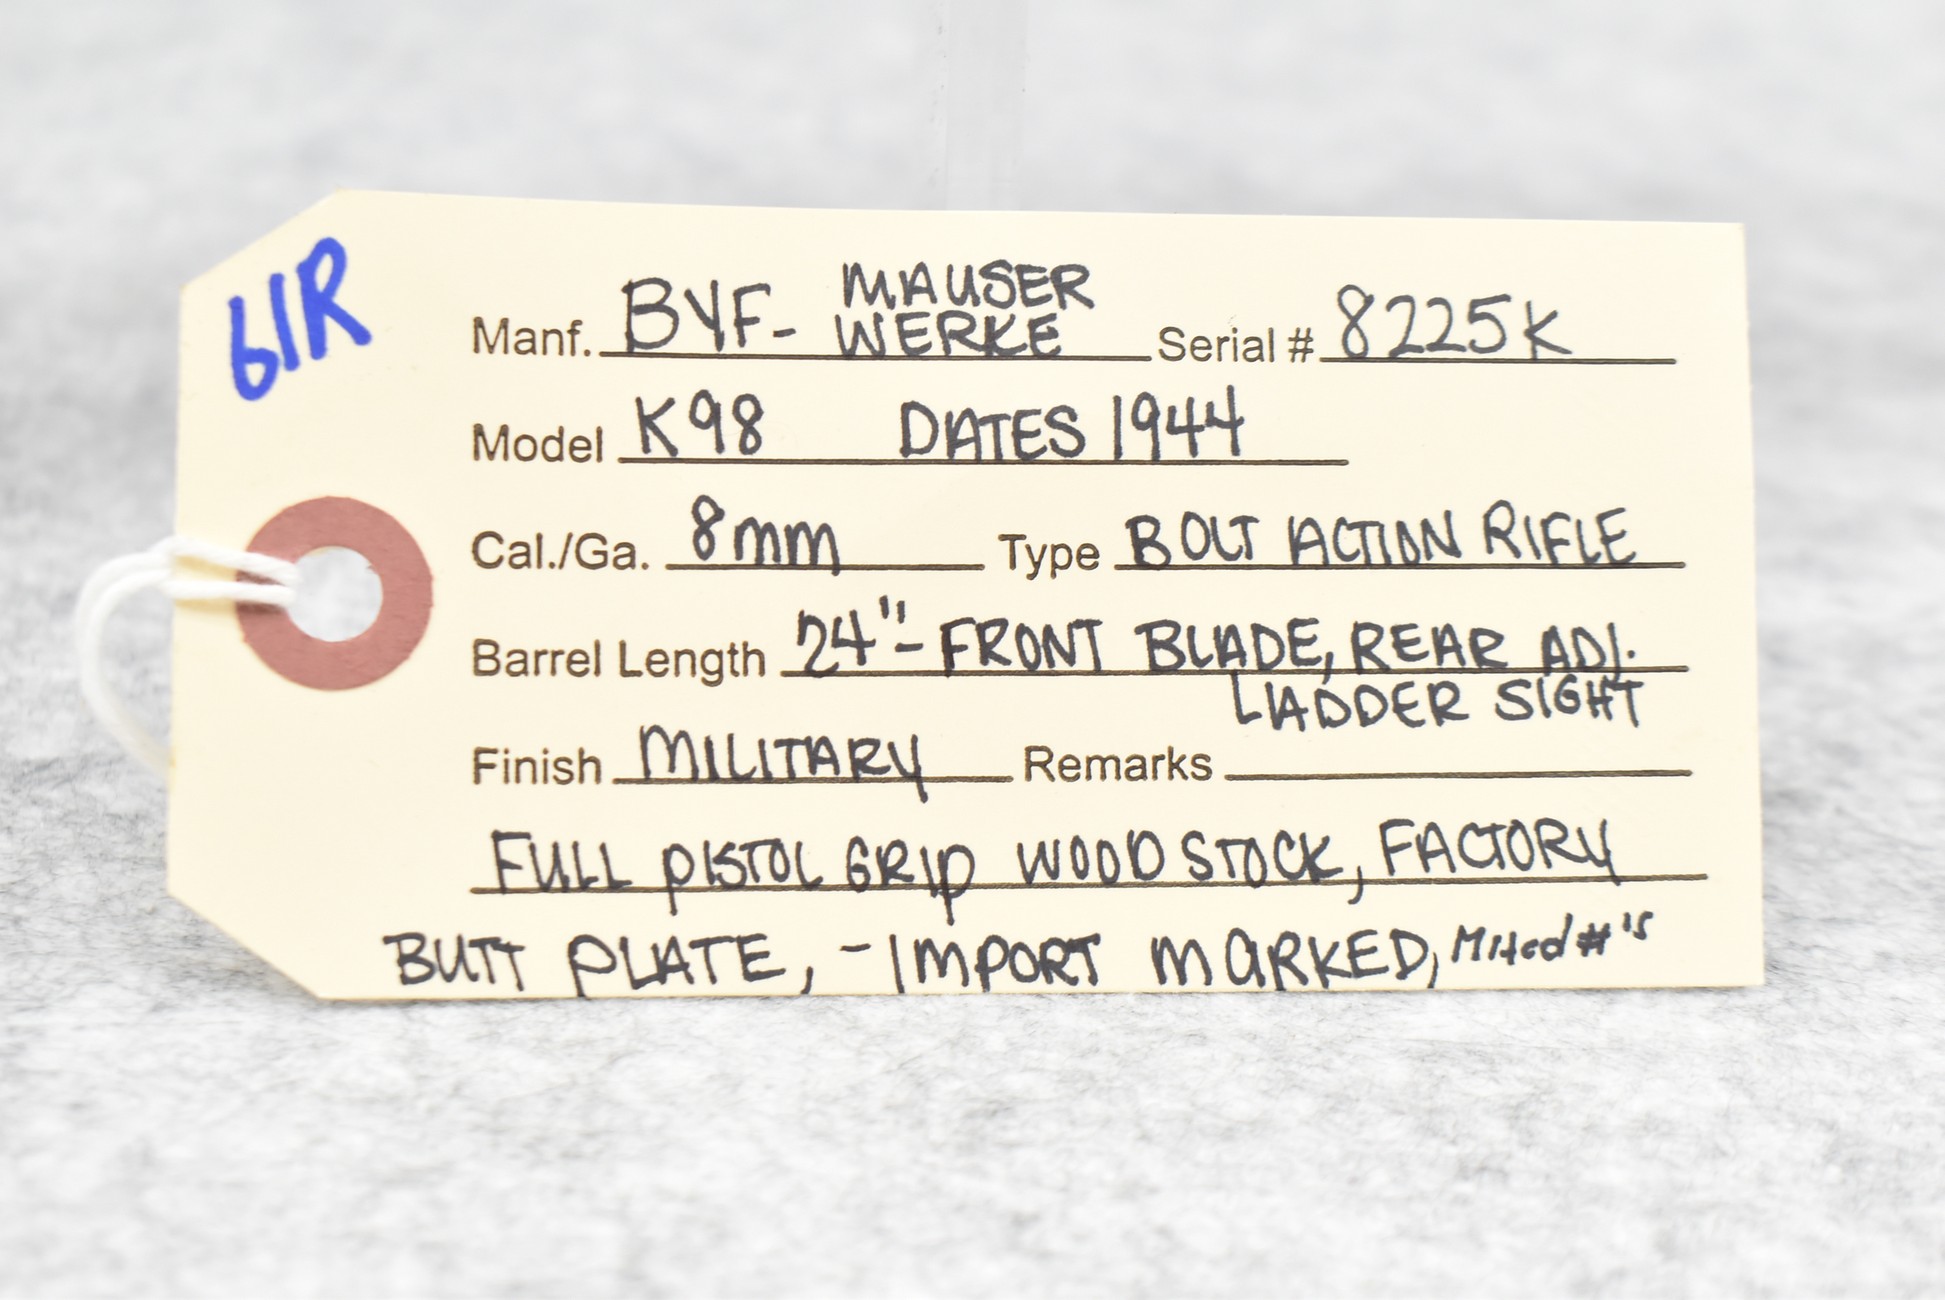 61R
Manf. BYF- MAUSER WERKE Serial # 8225K
Model K98 DATES 1944
Cal./Ga. 8mm Type BOLT ACTION RIFLE
Barrel Length 24"- FRONT BLADE, REAR ADJ.
LADDER SIGHT
Finish MILITARY Remarks
FULL PISTOL GRIP WOOD STOCK, FACTORY
BUTT PLATE, - IMPORT MARKED, Mixed #'s